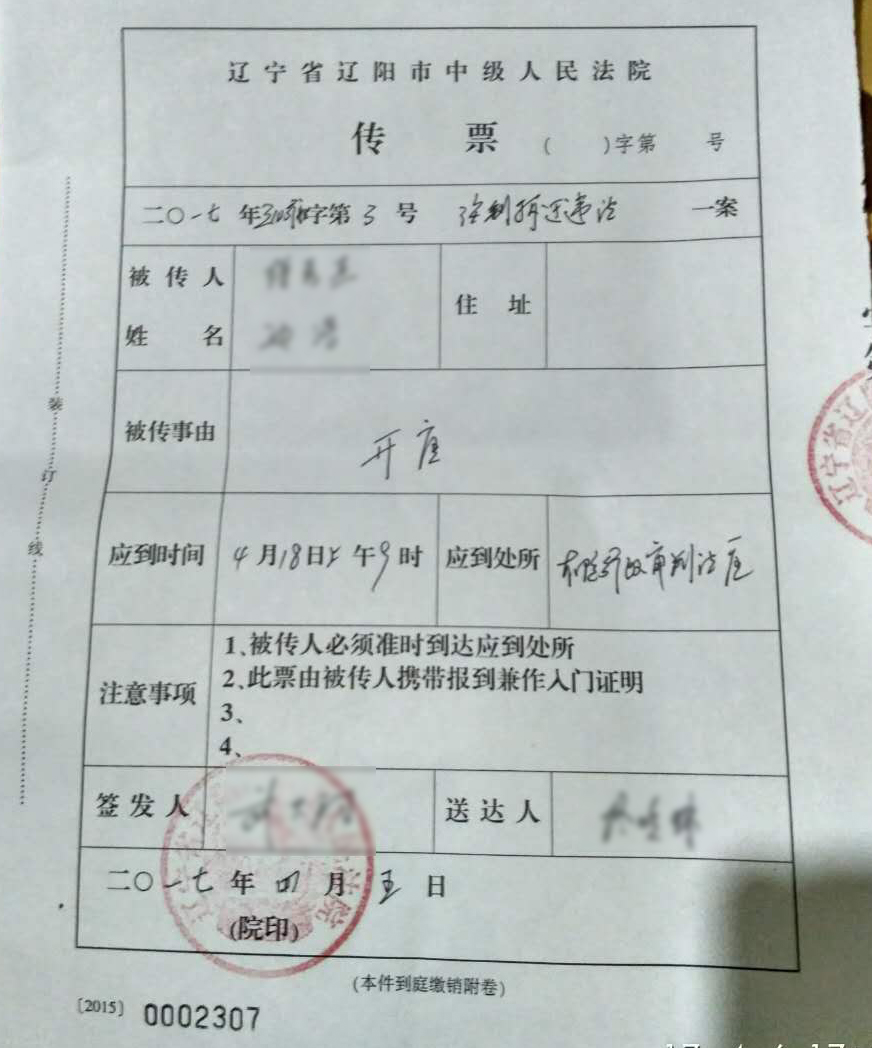 辽宁省辽阳市中级人民法院
传 票 ( )字第 号
二〇一七 年 字第 3 号 强制拆迁违法 一案
被传人
姓 名
住 址
被传事由
开庭
应到时间
4月18日上午9时
应到处所
审判法庭
注意事项
1、被传人必须准时到达应到处所
2、此票由被传人携带报到兼作入门证明
3、
4、
签发人
送达人
二〇一七 年 四 月 五 日
(院印)
(本件到庭缴销附卷)
〔2015〕 0002307
装
订
线
辽宁省辽